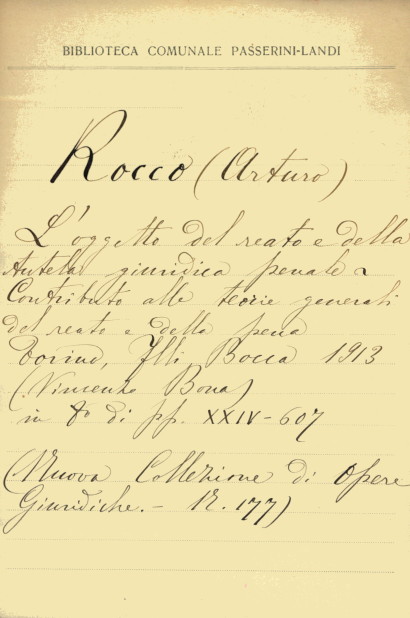 BIBLIOTECA COMUNALE PASSERINI-LANDI
Rocco (Arturo)
L'oggetto del reato e della
tutela giuridica penale -
Contributo alle teorie generali
del reato e della pena
Torino, Flli Bocca 1913
(Vincenzo Bona)
in 8º di pp. XXIV-607
(Nuova Collezione di Opere
Giuridiche. - N. 177)